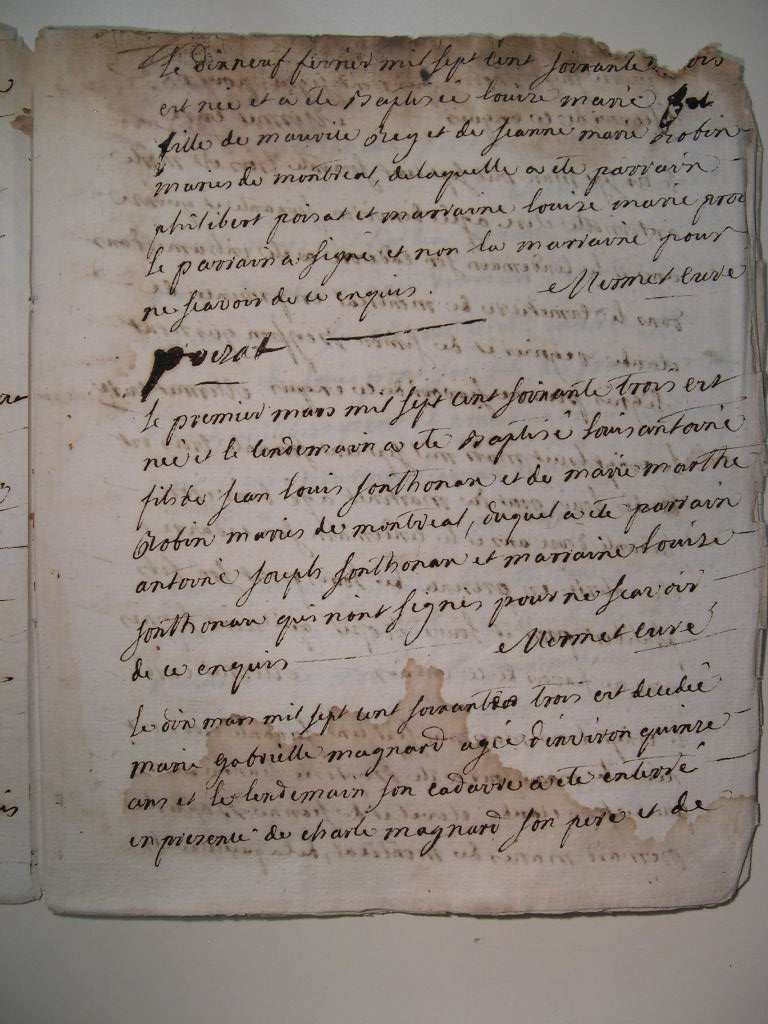 Le dixneuf fevrier mil sept cent soixante trois
est née et a ete Baptisée louise marie
fille de maurile Rey et de Jeanne marie Robin
mariés de montreal, de laquelle a ete parrain
philibert poisat et marraine louise marie proo
le parrain a signé et non la marraine pour
ne scavoir de ce enquis. Mermet curé
poisat
Le premier mars mil sept cent soixante trois est
né et le lendemain a ete Baptisé louis antoine
fils de Jean louis Sonthonax et de marie marthe
Robin mariés de montreal, duquel a ete parrain
antoine Joseph Sonthonax et marraine louise
Sonthonax qui n'ont signés pour ne scavoir
de ce enquis Mermet curé
Le dix mars mil sept cent soixante trois est decedée
marie gabrielle magnard agée d'environ quinze
ans et le lendemain son cadavre a ete enterré
en presence de charle magnard son pere et de